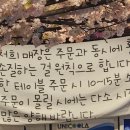 저희 매장은 주문과 동시에
조리하는 걸 원칙으로 합니다
한 테이블 주문 시 10~15분
주문이 몰릴 시에는 다소 시
많은 양해 바랍니다